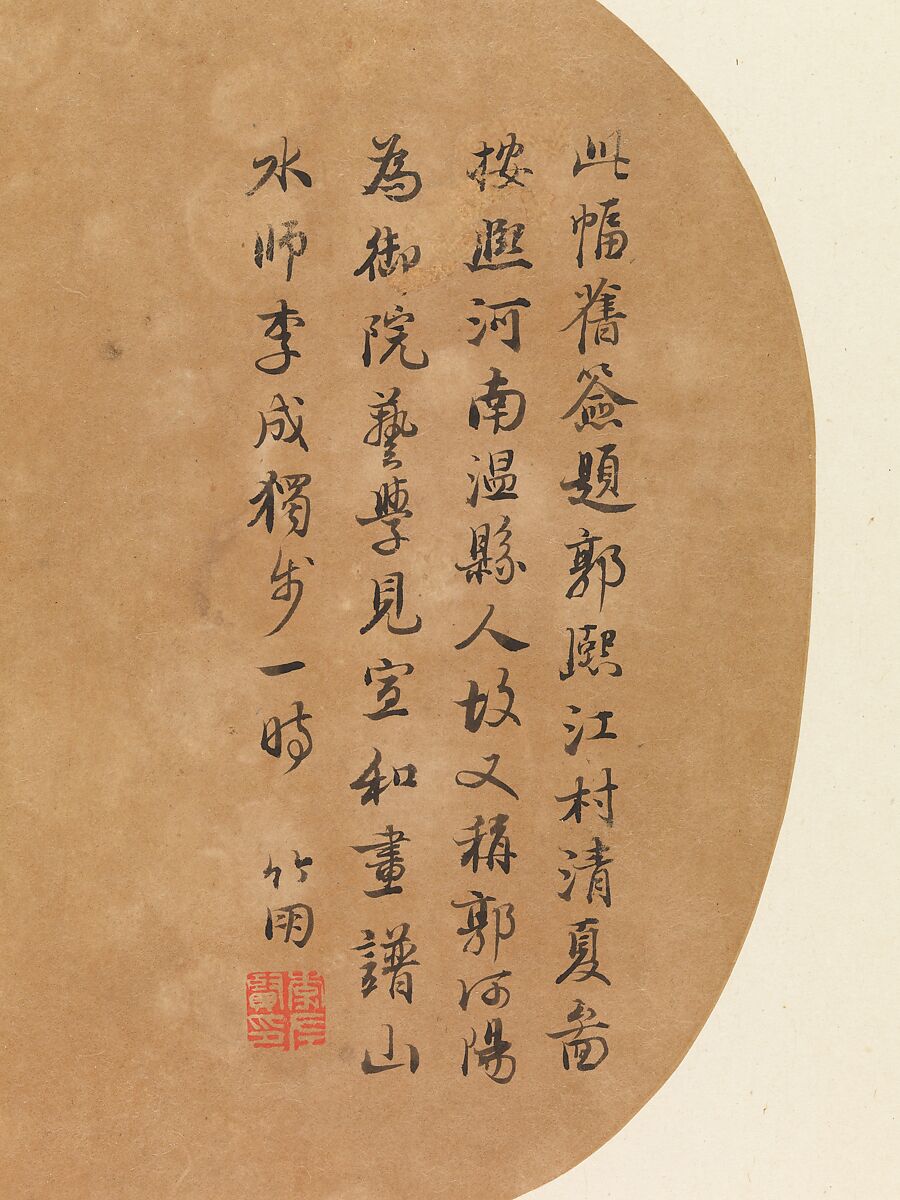 此幅舊簽題郭熙江村清夏啚
按熙河南温縣人故又稱郭河陽
為御院藝學見宣和畫譜山
水師李成獨步一時
竹朋